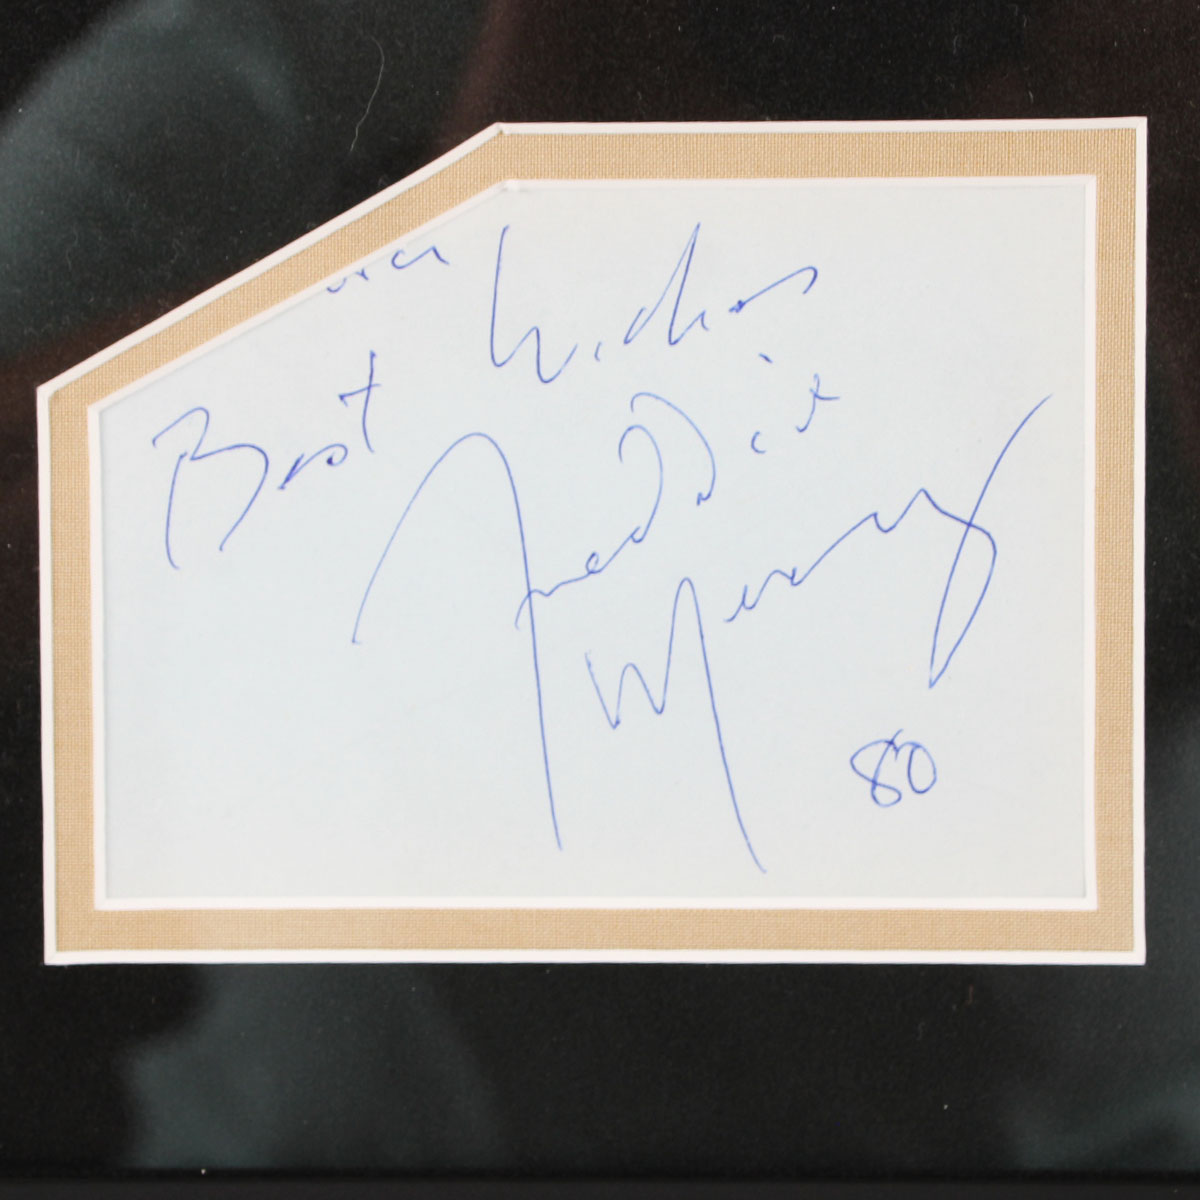 Best Wishes
Freddie
Mercury
80